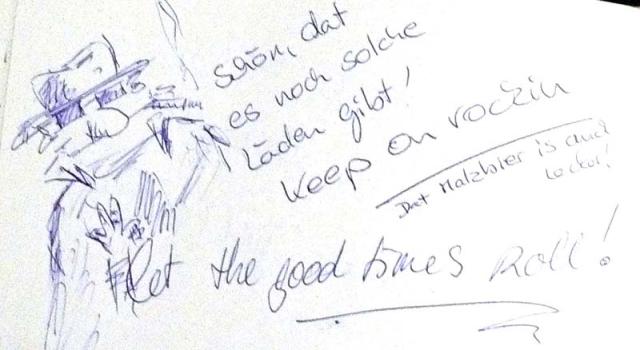 Schön, dat
es noch solche
Läden gibt!
Keep on rockin
Dat Malzbier is auch
locker!
let the good times Roll!